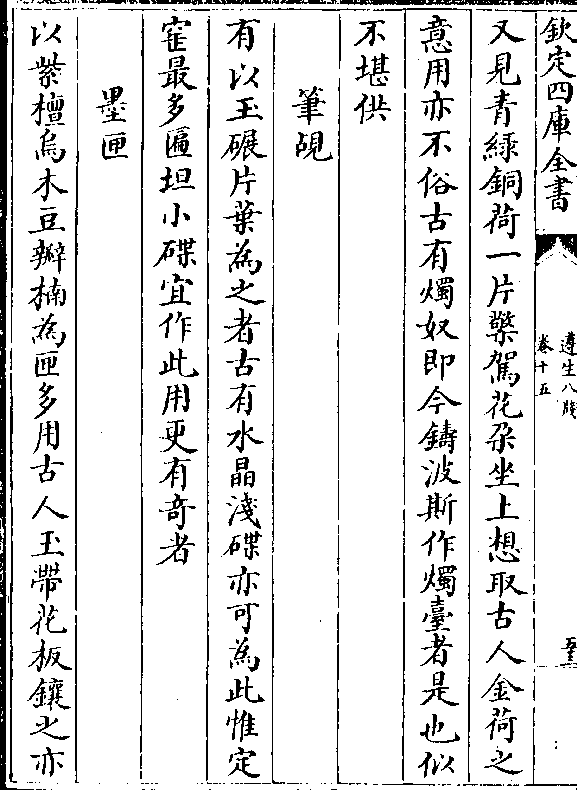 欽定四庫全書
遵生八牋
卷十五
又見青緑銅荷一片檠駕花朶坐上想取古人金荷之
意用亦不俗古有燭奴即今鑄波斯作燭臺者是也似
不堪供
筆覘
有以玉碾片葉為之者古有水晶淺碟亦可為此惟定
窑最多匾坦小碟宜作此用更有奇者
墨匣
以紫檀烏木豆瓣楠為匣多用古人玉帶花板鑲之亦